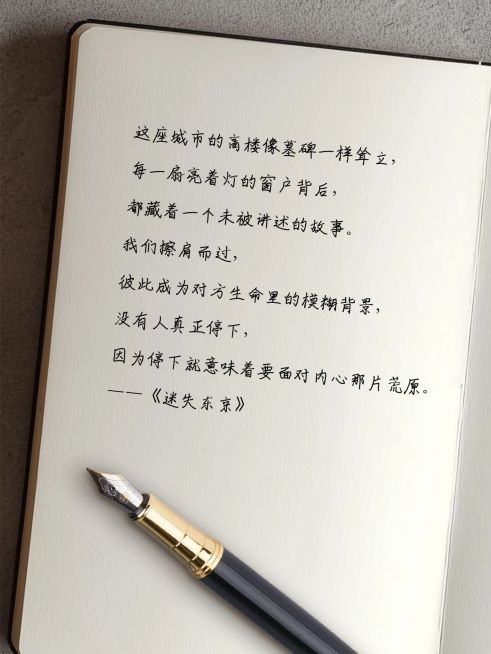 这座城市的高楼像墓碑一样耸立，
每一扇亮着灯的窗户背后，
都藏着一个未被讲述的故事。
我们擦肩而过，
彼此成为对方生命里的模糊背景，
没有人真正停下，
因为停下就意味着要面对内心那片荒原。
——《迷失东京》